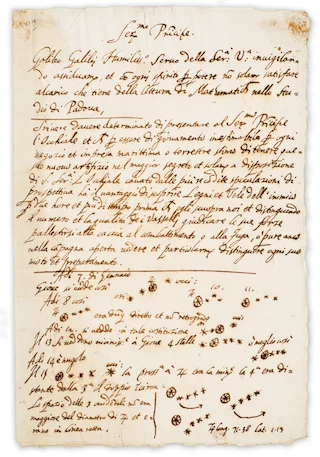 Ser.mo Principe.
Galileo Galilei Humiliss.o Servo della Ser.a V.a invigilan-
do assiduam.te, et có ogni spirito p potere nó solam.te satisfare
al carico che tiene della lettura di Matematich nello Stu-
dio di Padova,
Scrivere d'avere determinato di presentare al Ser.mo Principe
l'Occhiale et p essere di giovamento inestimabile p ogni
negozio et impresa marittima o terrestre stimo di tenere que-
sto nuovo artifizio nel maggior segreto et solam.te a disposizione
di S. Ser.à L'Occhiale cavato dalle più recòdite speculazioni di
prospettiva hà il vantaggio di scoprire Legni et Vele dell'inimico
p due hore et più di tempo prima ch'egli scuopra noi et distinguendo
il numero et la qualità de i Vasselli giudicare le sue forze
pallestirsi alla caccia al combattimento o alla fuga, o pure anco
nella capagna aperta vedere et particolarm.te distinguere ogni suo
moto et preparamento.
Adi 7. di Gennaio
Giove si vedde così
Adi 8 così
era dug diretto et nó retrogrado
Adi 12. si vedde in tale costituzione
Il 13 si veddono vicinissi.e à Giove 4 stelle è meglio così
Adi 14 è nugolo
Il 15 la pross.a à ♃ era la min.e la 4.a era di-
stante dalla 3.a il doppio Ĩ circa
Lo spazio delle 3 occidētli nó era
maggiore del diametro di ♃ et e-
rano in linea retta.
♃ long. 71.38 lat. 1.13